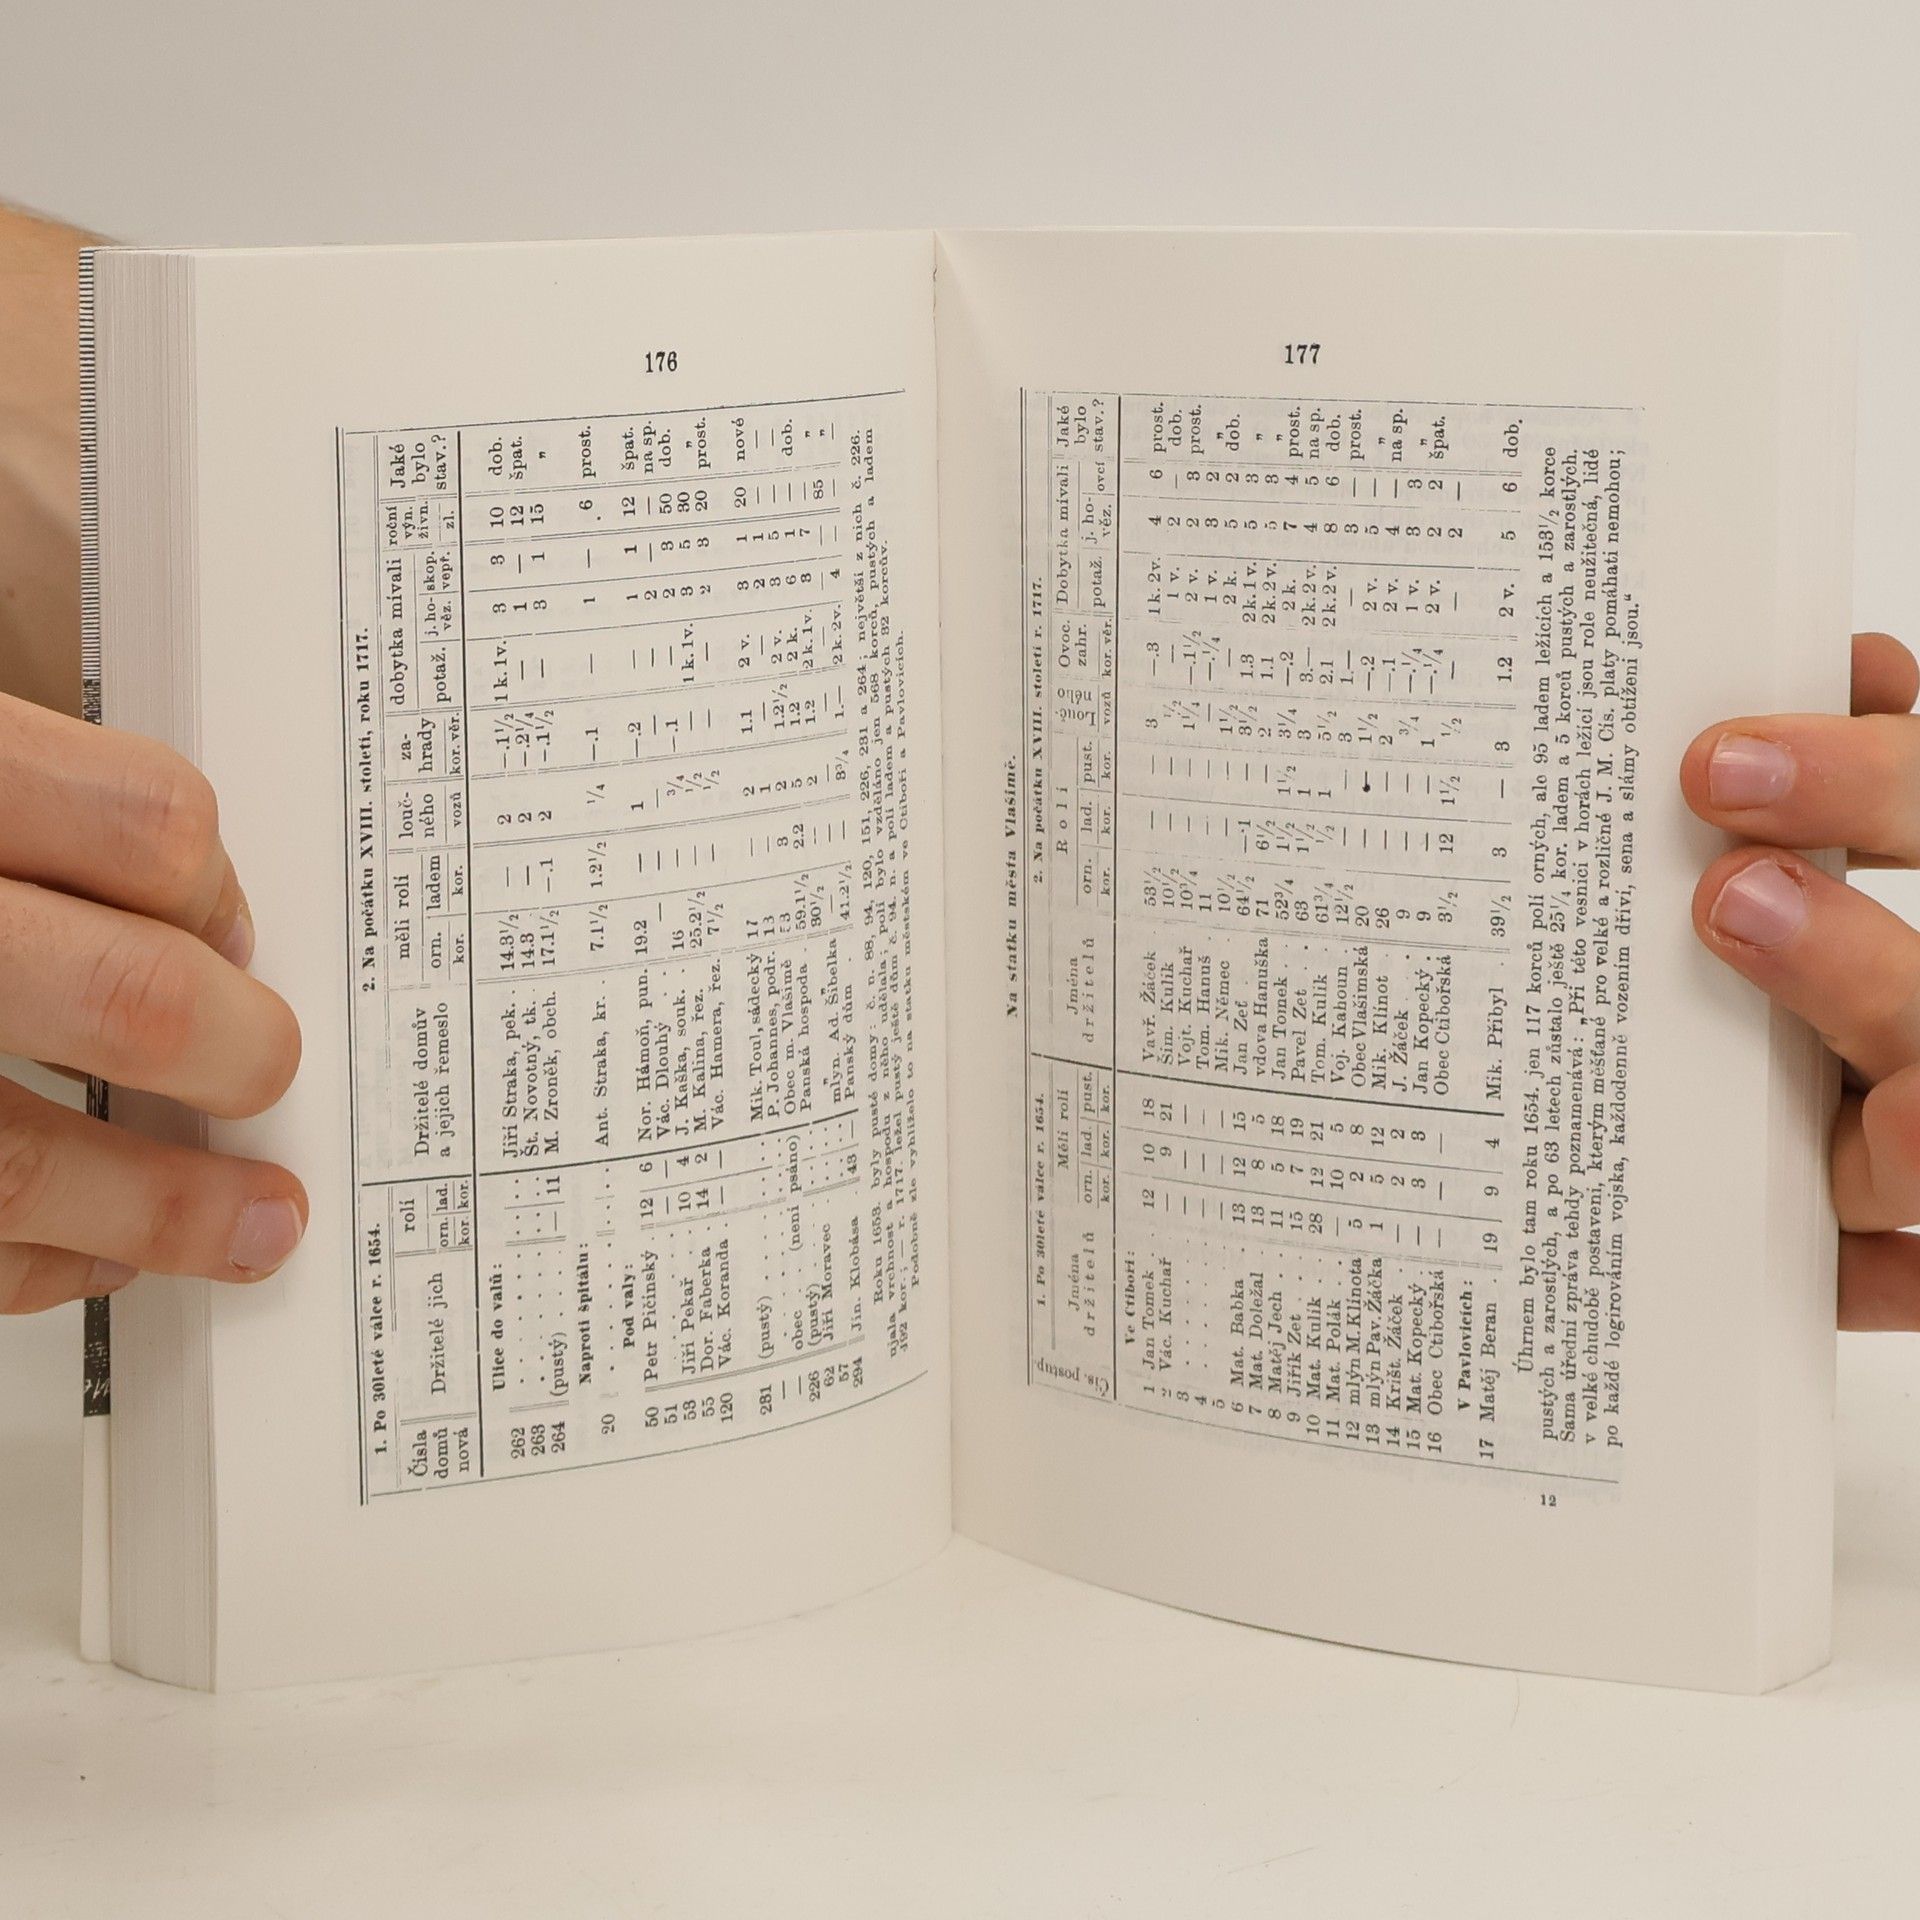 176
1. Po 30leté válce r. 1654. 2. Na počátku XVIII. století, roku 1717.
Čísla domů nová Držitelé jich rolí orn. kor. lad. kor. Držitelé domův a jejich řemeslo měli rolí orn. kor. ladem kor. louč- ného vozů za- hrady kor. věr. dobytka mívali potaž. j. ho- věz. skop. vepř. roční výn. živn. zl. Jaké bylo stav.?
Ulice do valů:
262 . . . . . . . . Jiří Straka, pek. . 14.3½ — 2 —.1½ 1k.1v. 3 3 10 dob.
263 . . . . . . . . Št. Novotný, tk. . 14.3 — 2 —.2¼ — 1 — 12 špat.
264 (pustý) . . . . — 11 M. Zroněk, obch. 17.1½ —.1 2 —.1½ — 3 1 15 „
Naproti špitálu:
20 . . . . . . . . Ant. Straka, kr. . 7.1½ 1.2½ ¼ —.1 — 1 — 6 prost.
Pod valy:
50 Petr Pičinský . 12 6 Nor. Hámoň, pun. 19.2 — 1 —.2 — 1 1 12 špat.
51 . . . . . — — Vác. Dlouhý . — — — — — 2 — — na sp.
53 Jiří Pekař . . 10 4 J. Kaška, souk. . 16 — ¾ —.1 — 2 3 50 dob.
55 Dor. Faberka . 14 2 M. Kalina, řez. 25.2½ — ½ — 1k. 1v. 3 5 30 „
120 Vác. Koranda . — — Vác. Hamera, řez. 7½ — ½ — — 2 3 20 prost.
281 (pustý) . . . . . . . Mik. Toul, sádecký 17 — 2 1.1 2 v. 3 1 20 nové
— . . . . . . . P. Johannes, podr. 13 — 1 — — 2 1 — —
— obec . . (není psáno) Obec m. Vlašimě 3 2 1.2½ 2 v. 3 5 — —
226 (pustý) . . . . . Panská hospoda . 59.1½ 2.2 5 1.2 2 k. 6 1 — dob.
62 Jiří Moravec . . . „ mlyn. Ad. Šibelka 30½ — 2 1.2 2k.1v. 3 7 — „
57 . . . — — — — — — 85 „
294 Jin. Klobása . 43 — Panský dům . 41.2½ — 8¾ 1.— 2k.2v. 4 — — —
Roku 1653. byly pusté domy: č. n. 88, 94, 120, 151, 226, 231 a 264; největší z nich č. 226.
ujala vrchnost a hospodu z něho udělala; polí bylo vzděláno jen 568 korců, pustých a ladem
392 kor.; — r. 1717. ležel pustý ještě dům č. 94. n. a polí ladem a pustých 82 korcův.
Podobně zle vyhlíželo to na statku městském ve Ctiboři a Pavlovicích.
177
Na statku města Vlašimě.
1. Po 30leté válce r. 1654. 2. Na počátku XVIII. století r. 1717.
Čís. postup. Jména držitelů Měli rolí orn. kor. lad. kor. pust. kor. Jména držitelů Rolí orn. kor. lad. kor. pust. kor. Louč- ného vozů Ovoc. zahr. kor. věr. Dobytka mívali potaž. j. ho- věz. ovcí Jaké bylo stav.?
Ve Ctiboři:
1 Jan Tomek . . 12 10 18 Vavř. Žáček . 53½ — — 3 —.3 1k.2v. 4 6 prost.
2 Vác. Kuchař . — 9 21 Šim. Kulik . 10½ — — ½ — 1 v. 2 — dob.
3 . . . . . — — — Vojt. Kuchař . 10¼ — — 1¼ —.1½ 2 v. 2 3 prost.
4 . . . . . — — — Tom. Hanuš . 11 — — — —.¼ 1 v. 3 2 „
5 — — — Mik. Němec . 10½ — — 1½ — 2 k. 5 2 dob.
6 Mat. Babka . 13 12 15 Jan Zeť . . 64½ —.1 — 3½ 1.3 2k.1v. 5 3 „
7 Mat. Doležal . 13 8 5 vdova Hanuška 71 6½ — 2 1.1 2k.2v. 5 3 „
8 Matěj Jech . . 11 5 18 Jan Tomek . . 52¾ 1½ 1½ 3¼ —.2 2 k. 7 4 prost.
9 Jiřík Zet . . 15 7 19 Pavel Zet . . 63 1½ 1 3 3.— 2k.2v. 4 5 na sp.
10 Mat. Kulik . . 28 12 21 Tom. Kulik . 61¾ ½ 1 5½ 2.1 2k.2v. 8 6 dob.
11 Mat. Polák . . — 10 5 Voj. Kahoun . 12½ — — 3 1.— — 3 — prost.
12 mlýn M. Klínota 5 2 8 Obec Vlašimská 20 — — 1½ —.2 2 v. 5 — „
13 mlýn Pav. Žáčka 1 5 12 Mik. Klínot . 26 — — 2 —.1 2 v. 4 — na sp.
14 Kříšt. Žáček . — 2 2 J. Žáček . . 9 — — ¾ —.¼ 1 v. 3 3 „
15 Mat. Kopecký . — 3 3 Jan Kopecký . 9 — — 1 —.¼ 2 v. 2 2 špat.
16 Obec Ctibořská — — — Obec Ctibořská 3½ 12 1½ ½ — — 2 —
V Pavlovicích:
17 Matěj Beran . 19 9 4 Mik. Přibyl . 39½ 3 — 3 1.2 2 v. 5 6 dob.
Úhrnem bylo tam roku 1654. jen 117 korců polí orných, ale 95 ladem ležících a 153½ korce
pustých a zarostlých, a po 63 letech zůstalo ještě 25¼ kor. ladem a 5 korců pustých a zarostlých.
Sama úřední zpráva tehdy poznamenává: „Při této vesnici v horách ležící jsou role neužitečná, lidé
v velké chudobě postavení, kterým měšťané pro velké a rozličné J. M. Cís. platy pomáhati nemohou;
po každé logírováním vojska, každodenně vozením dříví, sena a slámy obtíženi jsou.“
12